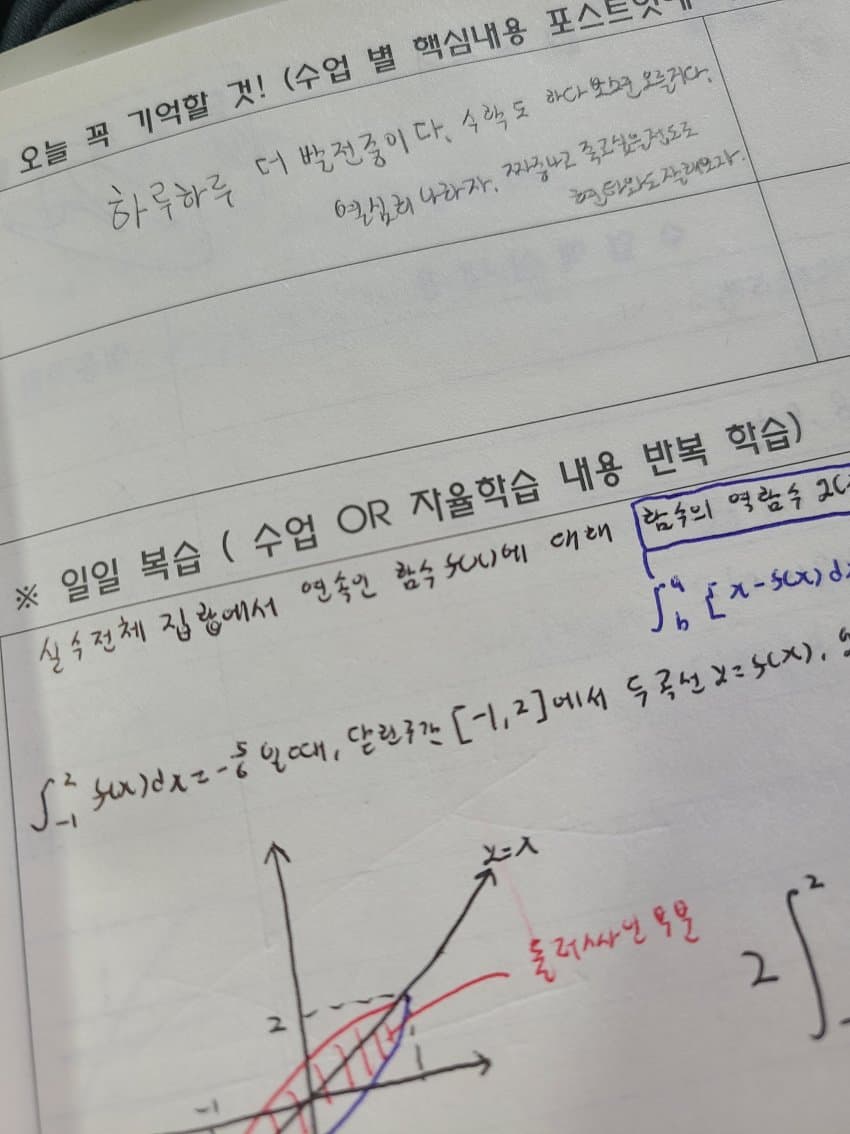 오늘 꼭 기억할 것! (수업 별 핵심내용 포스트잇에
하루하루 더 발전중이다. 수학도 하다보면 오른다.
열심히 나라자. 짜증나고 죽고싶은정도로
현타와도 잘해보자.
※ 일일 복습 ( 수업 OR 자율학습 내용 반복 학습)
실수전체 집합에서 연속인 함수 f(x)에 대해 함수의 역함수
∫ₐᵇ [x-f(x)dx
∫₋₁² f(x)dx = -5/6 일때, 닫힌구간 [-1, 2]에서 두 곡선 y=f(x),
y=x
둘러싸인 부분
2
2∫²
-1